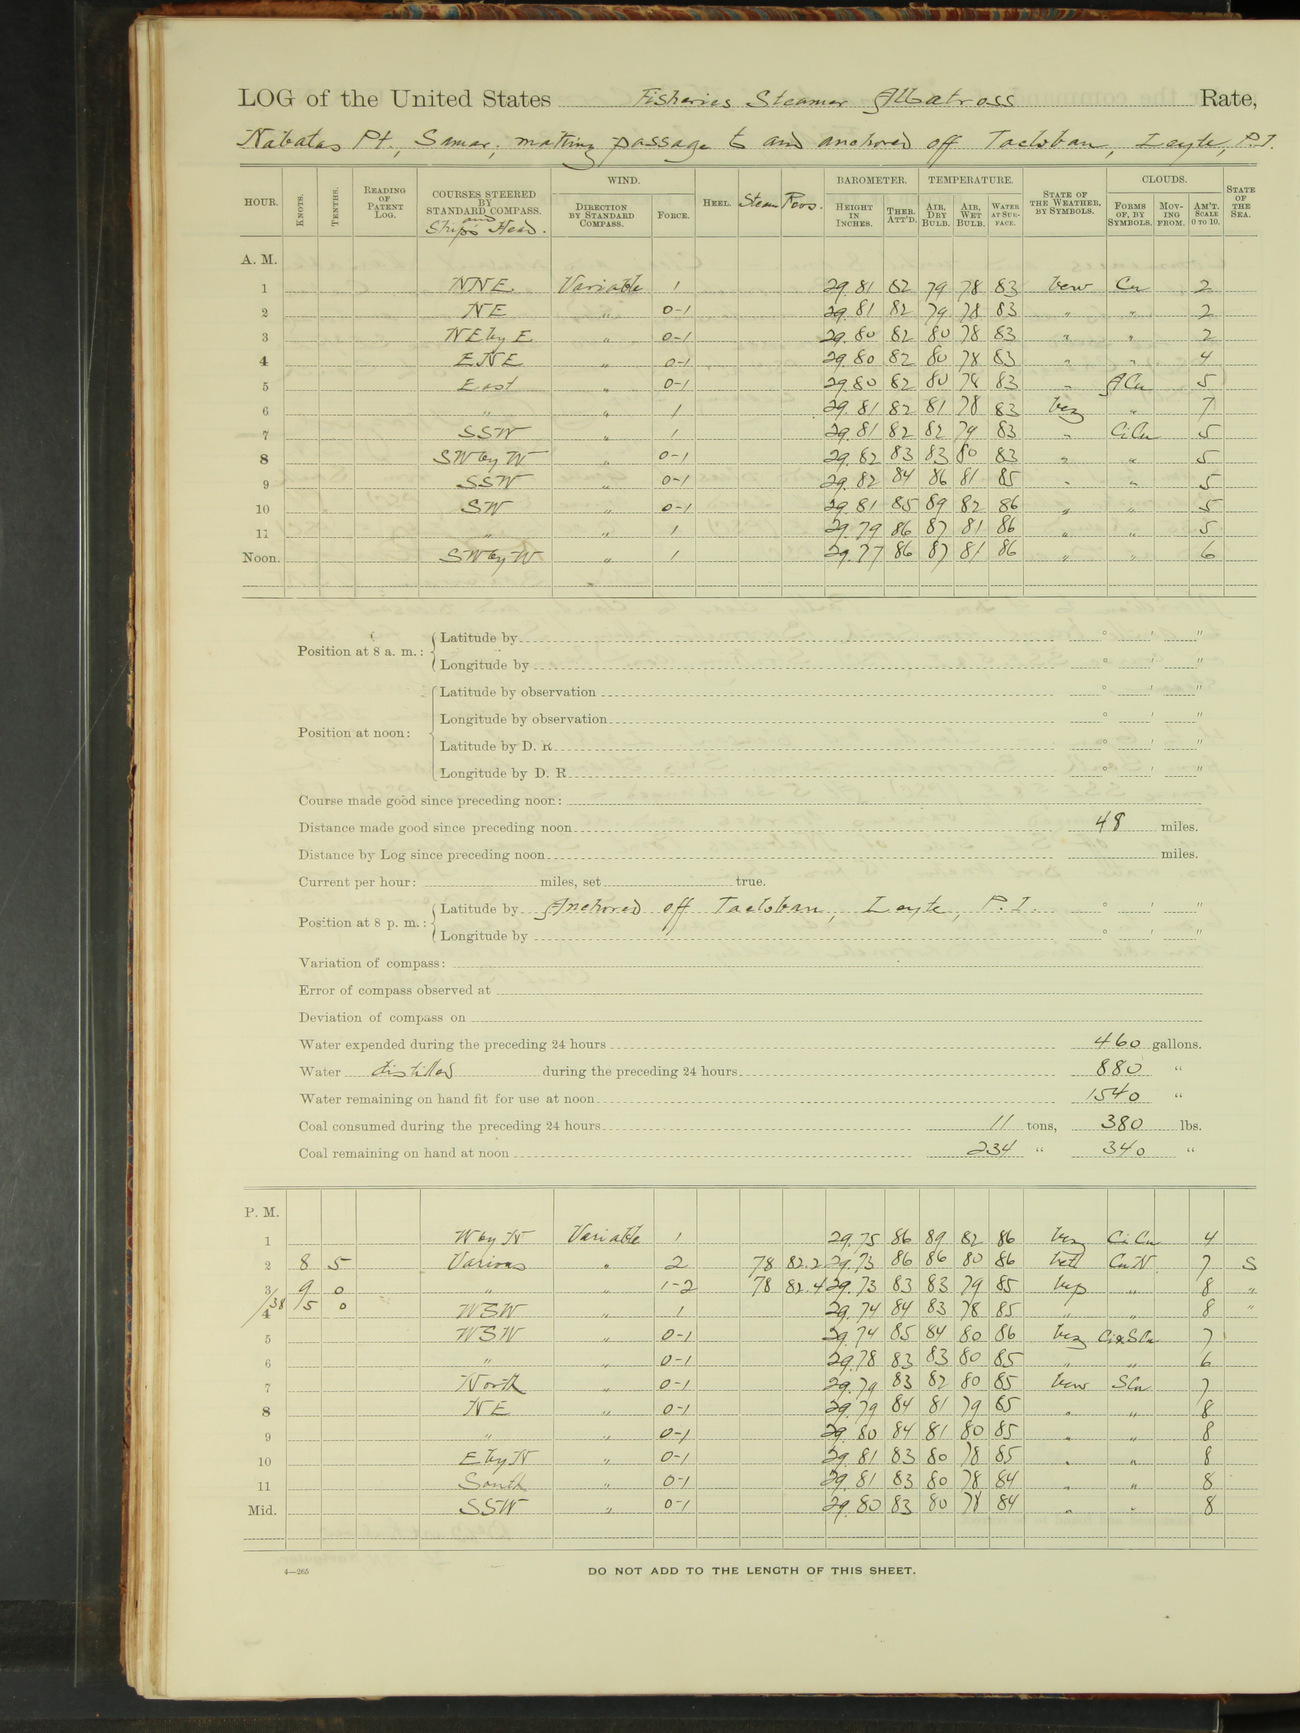 LOG of the United States Fisheries Steamer Albatross Rate,
Nabatas Pt., Samar, making passage to and anchored off Tacloban, Leyte, P.I.
HOUR. KNOTS. TENTHS. READING OF PATENT LOG. COURSES STEERED BY STANDARD COMPASS. and Ship's Head. WIND. DIRECTION BY STANDARD COMPASS. FORCE. HEEL. Steam Revs. BAROMETER. HEIGHT IN INCHES. THER. ATT'D. TEMPERATURE. AIR, DRY BULB. AIR, WET BULB. WATER AT SURFACE. STATE OF THE WEATHER, BY SYMBOLS. CLOUDS. FORMS OF, BY SYMBOLS. MOVING FROM. AM'T. SCALE 0 TO 10. STATE OF THE SEA.
A. M.
1 NNE. Variable 1 29.81 82 79 78 83 bcw Cu 2
2 NE " 0-1 29.81 82 79 78 83 " " 2
3 NE by E " 0-1 29.80 82 80 78 83 " " 2
4 ENE " 0-1 29.80 82 80 78 83 " " 4
5 East " 0-1 29.80 82 80 78 83 " ACu 5
6 " " 1 29.81 82 81 78 83 bcz " 7
7 SSW " 1 29.81 82 82 79 83 " CiCu 5
8 SW by W " 0-1 29.82 83 83 80 83 " " 5
9 SSW " 0-1 29.82 84 86 81 85 " " 5
10 SW " 0-1 29.81 85 89 82 86 " " 5
11 " " 1 29.79 86 87 81 86 " " 5
Noon. SW by W " 1 29.77 86 87 81 86 " " 6
Position at 8 a. m.: Latitude by ° ' "
Longitude by ° ' "
Position at noon: Latitude by observation ° ' "
Longitude by observation ° ' "
Latitude by D. R ° ' "
Longitude by D. R ° ' "
Course made good since preceding noon:
Distance made good since preceding noon 48 miles.
Distance by Log since preceding noon miles.
Current per hour: miles, set true.
Position at 8 p. m.: Latitude by Anchored off Tacloban, Leyte, P.I. ° ' "
Longitude by ° ' "
Variation of compass:
Error of compass observed at
Deviation of compass on
Water expended during the preceding 24 hours 460 gallons.
Water distilled during the preceding 24 hours 880 "
Water remaining on hand fit for use at noon 1540 "
Coal consumed during the preceding 24 hours 11 tons, 380 lbs.
Coal remaining on hand at noon 234 " 340 "
P. M.
1 W by N Variable 1 29.75 86 89 82 86 bcz CiCu 4
2 8 5 Various " 2 78 82.2 29.73 86 86 80 86 CuN. 7 S
3 9 0 " " 1-2 78 82.4 29.73 83 83 79 85 bcp " 8 "
4 /38 /5 0 WSW " 1 29.74 84 83 78 85 " " 8 "
5 WSW " 0-1 29.74 85 84 80 86 bcz Ci&SCu 7
6 " " 0-1 29.78 83 83 80 85 " " 6
7 North " 0-1 29.79 83 82 80 85 bcw SCu 7
8 NE " 0-1 29.79 84 81 79 85 " " 8
9 " " 0-1 29.80 84 81 80 85 " " 8
10 E by N " 0-1 29.81 83 80 78 85 " " 8
11 South " 0-1 29.81 83 80 78 84 " " 8
Mid. SSW " 0-1 29.80 83 80 78 84 " " 8
4—265 DO NOT ADD TO THE LENGTH OF THIS SHEET.